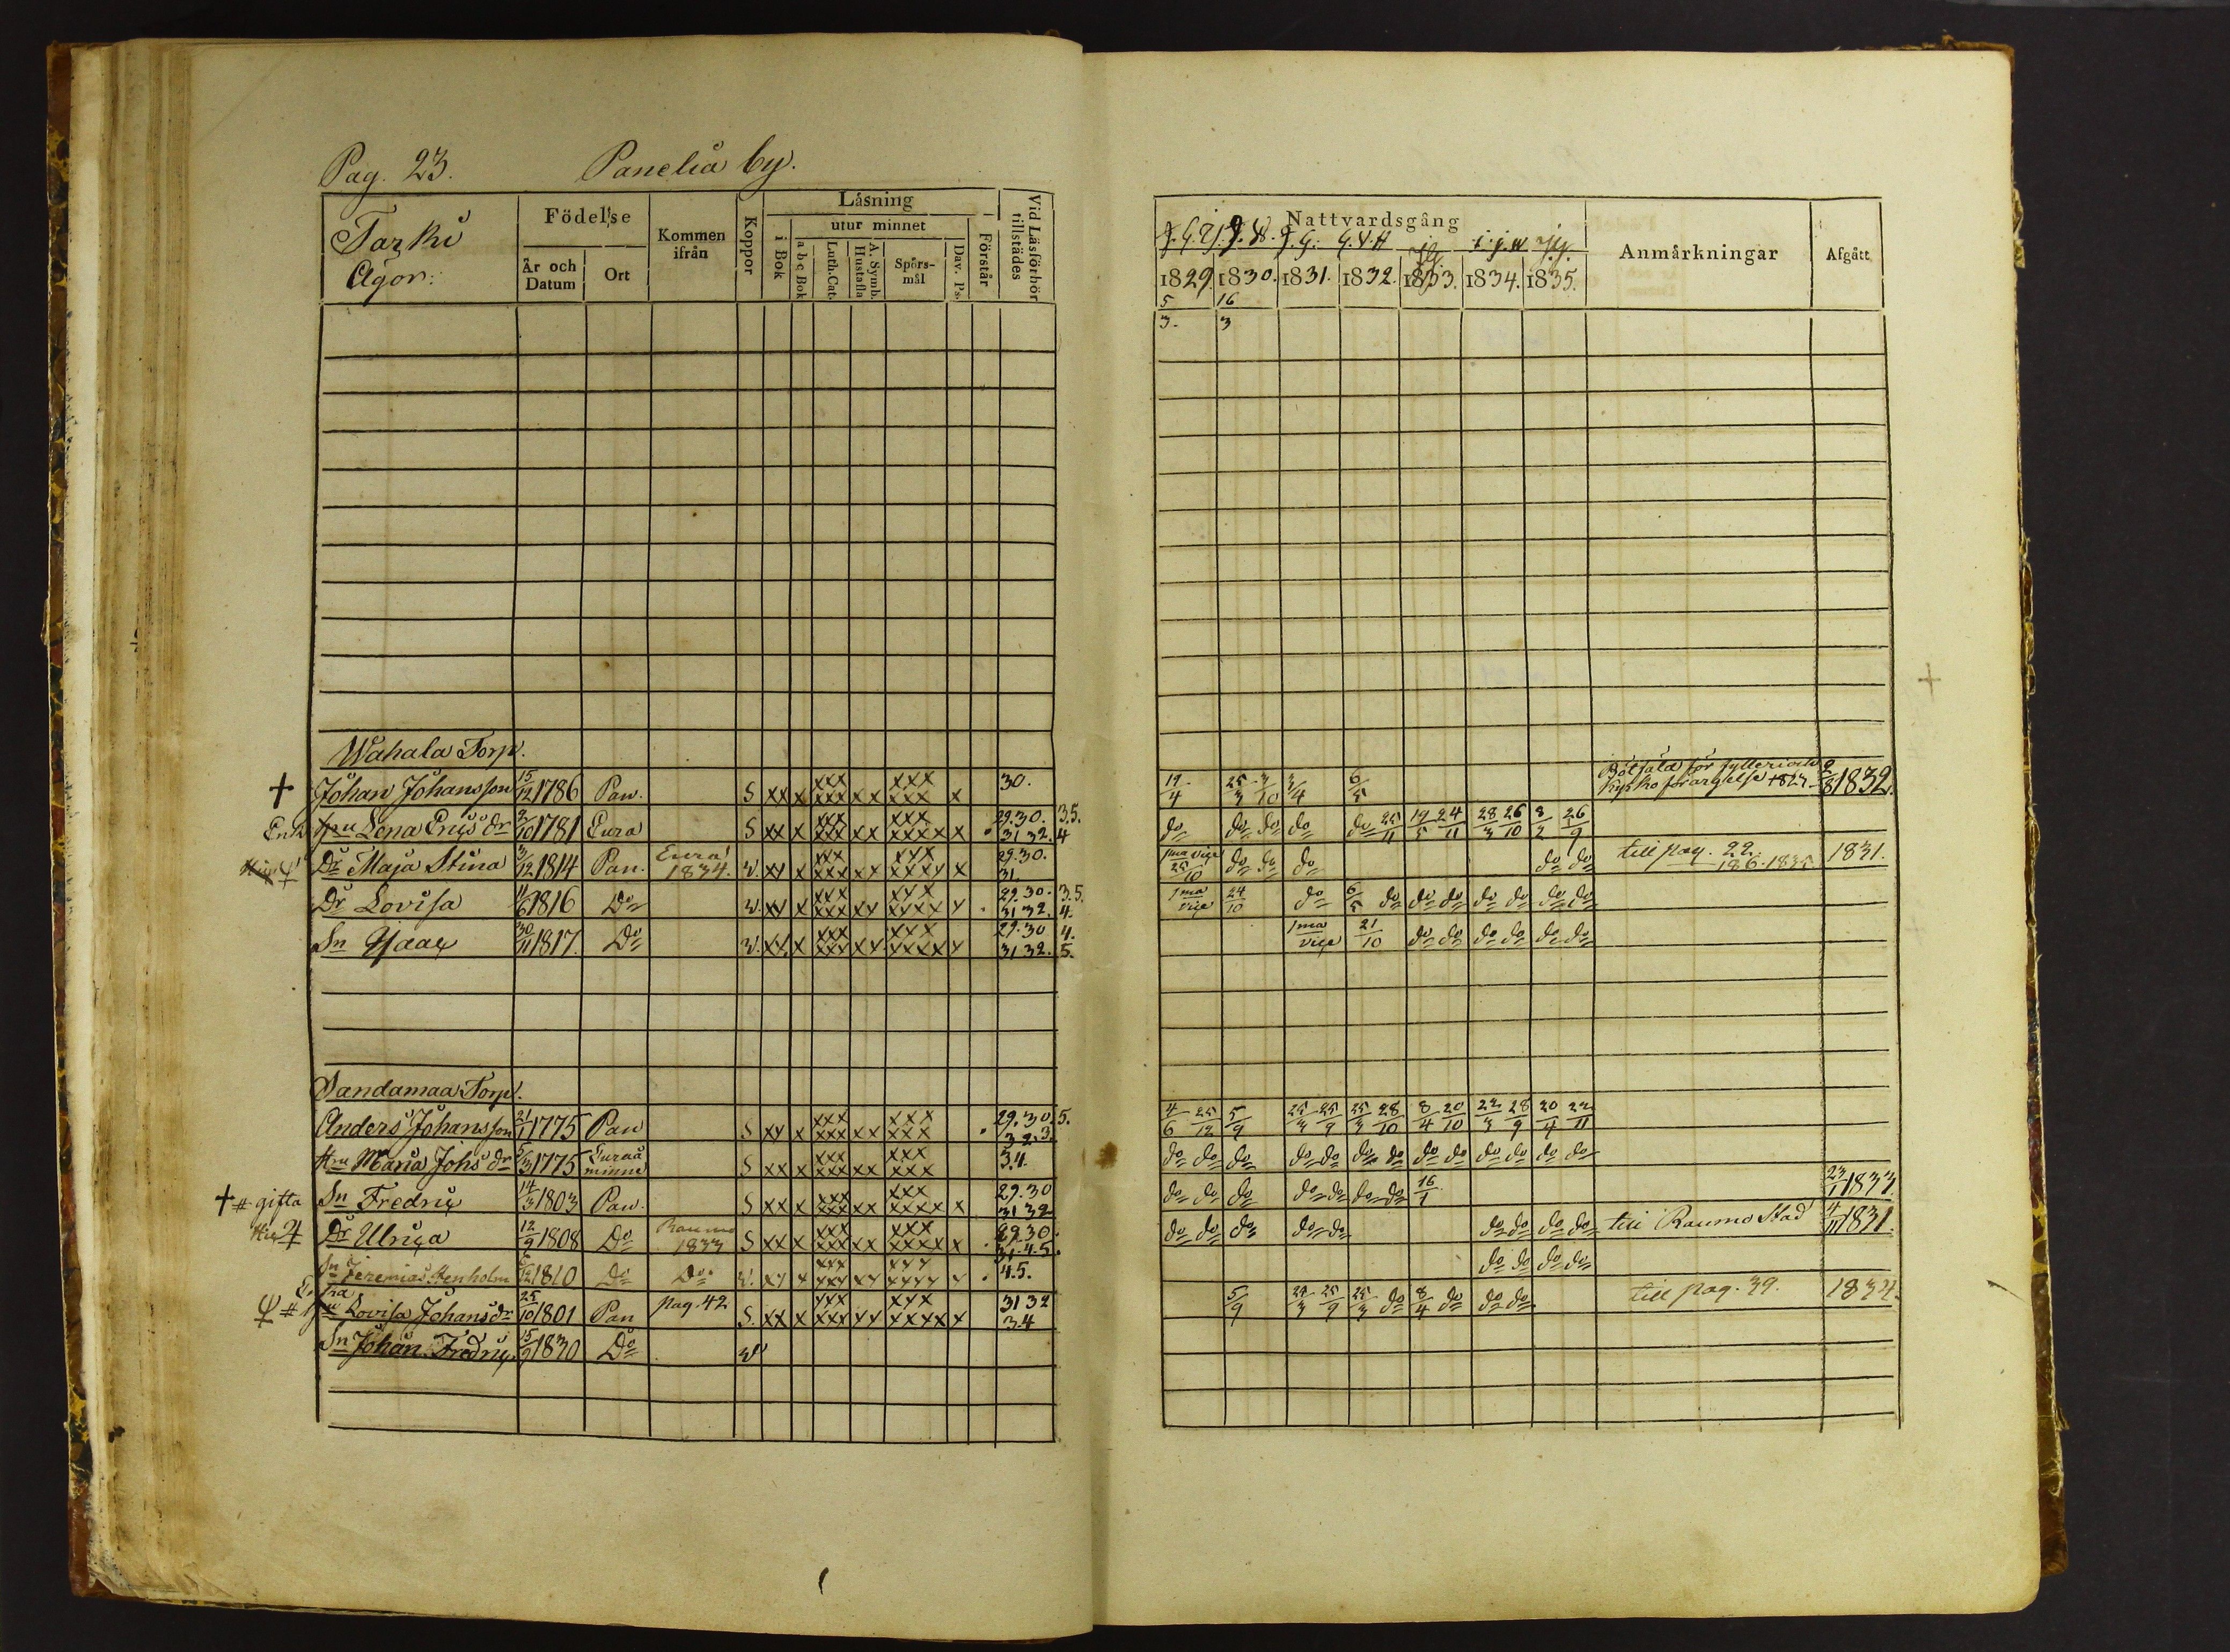 Pag. 23. Panelia by.
Tarki
Ägor:
Födelse
År och Datum
Ort
Kommen ifrån
Koppor
Läsning
i Bok
utur minnet
a b c Bok
Luth. Cat.
A. Symb. Hustafla
Spörsmål
Dav. Ps.
Förstår
Vid Läsförhör tillstädes
Nattvardsgång
1829. 1830. 1831. 1832. 1833. 1834. 1835.
5/3. 16/3
Anmärkningar
Afgått
Wahala Torp.
† Johan Johansson 15/12 1786 Pan. S xx x xxx xxx xx xxx xxx x 30. 25/3 3/10 6/5 1832.
Enk. Hu Lena Eriksdr 3/10 1781 Eura S xx x xxx xxx xx xxx xxxx x 29.30. 3.5. 31 32. 4 do do do do do 25/11 19/5 24/11 28/3 26/10 8/2 26/9
Dr Maja Stina 3/12 1814 Pan. Eura 1834. v. xx x xxx xxx xx xxx xxxx x 29.30. 31. 1ma vice 25/10 do do do do do till pag. 22. 18 6 1835 1831.
Dr Lovisa 11/6 1816 Do v. xx x xxx xxx xx xxx xxxx x 29.30. 3.5. 31 32. 4. 1ma vice 24/10 do 6/5 do do do do do do do
Sn Isaac 30/11 1817. Do v. xx x xxx xxx xx xxx xxxx x 29.30 4. 31 32. 5. 1ma vice 21/10 do do do do do do
Sandamaa Torp.
Anders Johansson 21/1 1775 Pan S xx x xxx xxx xx xxx xxx 29.30. 5. 32.3. 4/6 25/12 5/9 25/3 25/9 25/3 28/10 8/4 20/10 22/3 28/9 20/4 22/11
Hu Maria Johsdr 1775 Euraåminne S xx x xxx xxx xx xxx xxx 3.4. do do do do do do do do do do do do do
† # gifta Sn Fredric 14/3 1803 Pan. S xx x xxx xxx xx xxx xxxx x 29.30 31 32 do do do do do do do 16/1 23/1 1833.
Dr Ulrica 12/9 1808 Do Raumo 1833 S xx x xxx xxx xx xxx xxxx x 29.30. 31.4.5. do do do do do do do do do till Raumo Stad 4/11 1831.
Sn Jeremias Stenholm 1810 Do Do v. xx x xxx xxx xx xxx xxxx x 4.5. do do do do
Lovisa Johansdr 25/10 1801 Pan pag. 42 S. xx x xxx xxx xx xxx xxxx x 31 32 3.4 5/9 25/3 25/9 25/3 do 8/4 do do do till pag. 39. 1834.
Sn Johan Fredric 15/9 1830 Do v